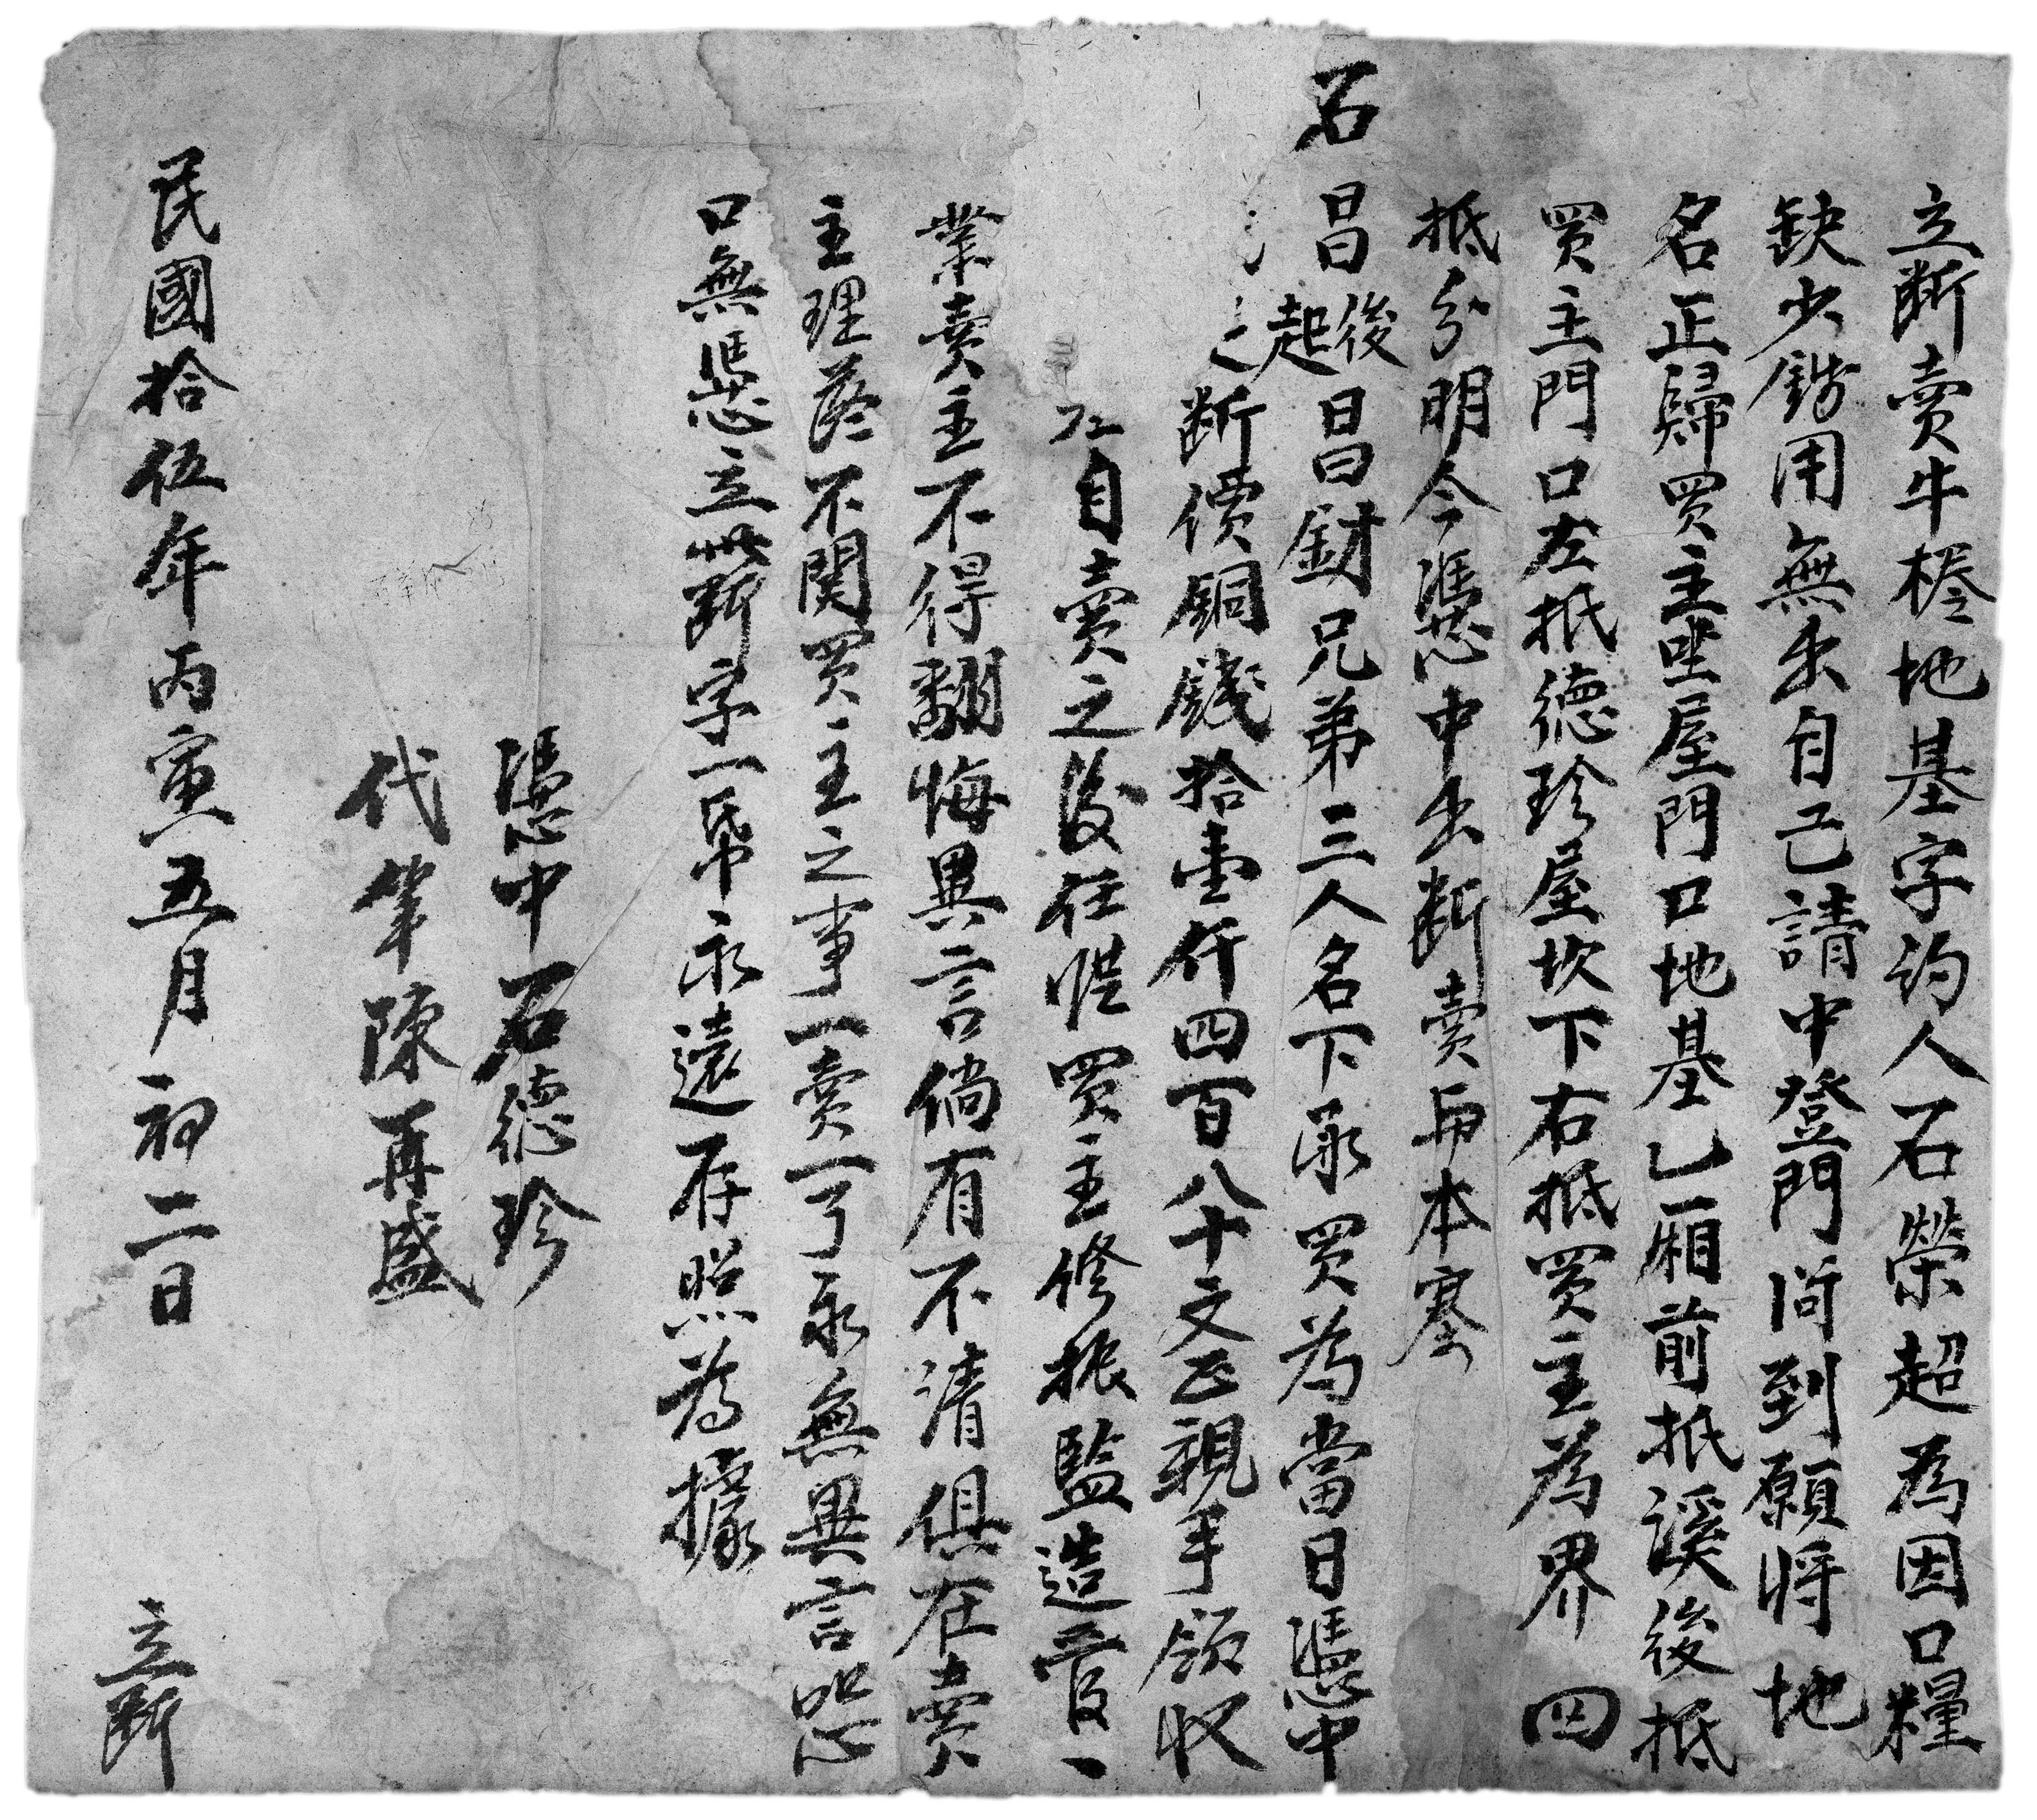 立断賣牛楼地基字约人石榮超為因口糧
缺少錢用無出自己請中登門问到願将地
名正歸買主坐屋門口地基乚厢前抵溪後抵
買主門口左抵德珍屋坎下右抵買主為界四
抵分明今憑中出断賣與本寨
石昌後昌起昌財兄弟三人名下承買為當日憑中
断價銅錢拾壹仟四百八十文正親手領收
自賣之後任凭買主修振監造管一
業賣主不得翻悔異言倘有不清俱在賣
主理落不関買主之事一賣一了永無異言恐
口無憑立此断字一㡳永遠存照為據
憑中石德珍
代筆陳再盛
民國拾伍年丙寅五月初二日 立断